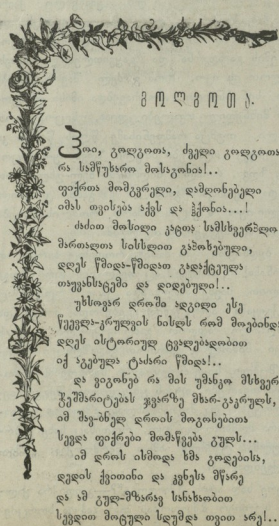 გოლგოთა.
ჰოი, გოლგოთა, ძველი გოლგოთა
რა სამწუხარო მოსაგონია!..
ფიქრთა მომგვრელი, დამღონებელი
იმას თვისება აქვს და ჰქონია...!
ძაძით მოსილი კაცთა სამსხვერპლო
მართალთა სისხლით გაპოხებული,
დღეს წმიდა-წმიდათ გადაქცეულა
თაყვანსაცემი და დიდებული!..
უხსოვარ დროში ადგილი ესე
წყევლა-კრულვის ნისლს რომ მოებინდა
დღეს ისტორიულ ცვალებადობით
იქ აგებულა ტაძარი წმიდა!..
და ვიგონებ რა მის უმანკო მსხვერპლს
ჭეშმარიტებას ჯვარზე მხარ-გაკრულს,
იმ შავ-ბნელ დროის მოგონებითა
სევდა ფიქრები მომაწვება გულს...
იმ დროს ისმოდა ხმა გოდებისა,
დედის ქვითინი და კვნესა მწარე
და ამ გულ-მზარავ სანახაობით
სევდით მოცული სდუმდა თვით არე!..